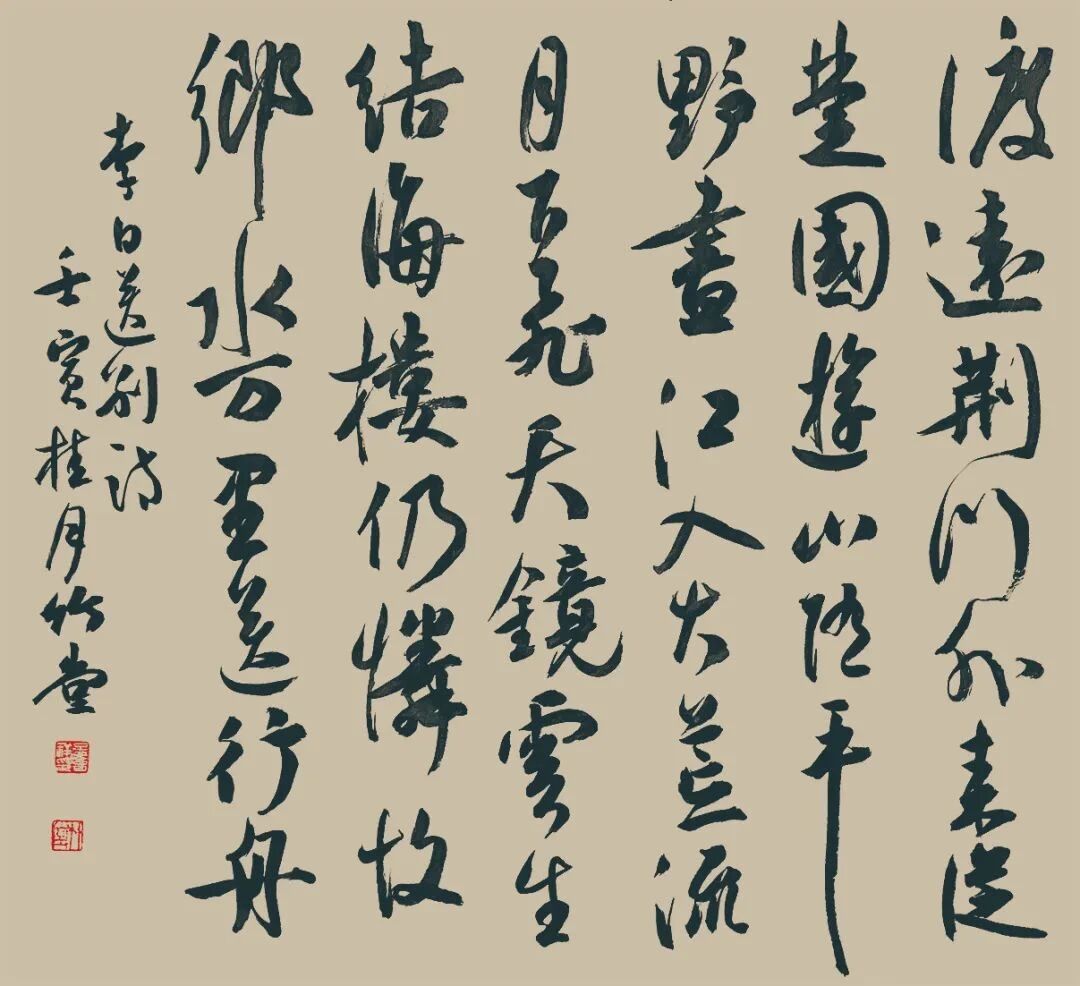 渡遠荆門外来從
楚國遊山随平
野盡江入大荒流
月下飛天鏡雲生
结海樓仍憐故
鄉水万里送行舟
李白送别詩
壬寅桂月竹堂